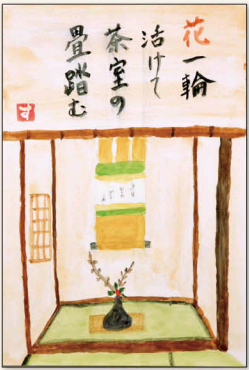 花一輪
活けて
茶室の
畳踏む
す